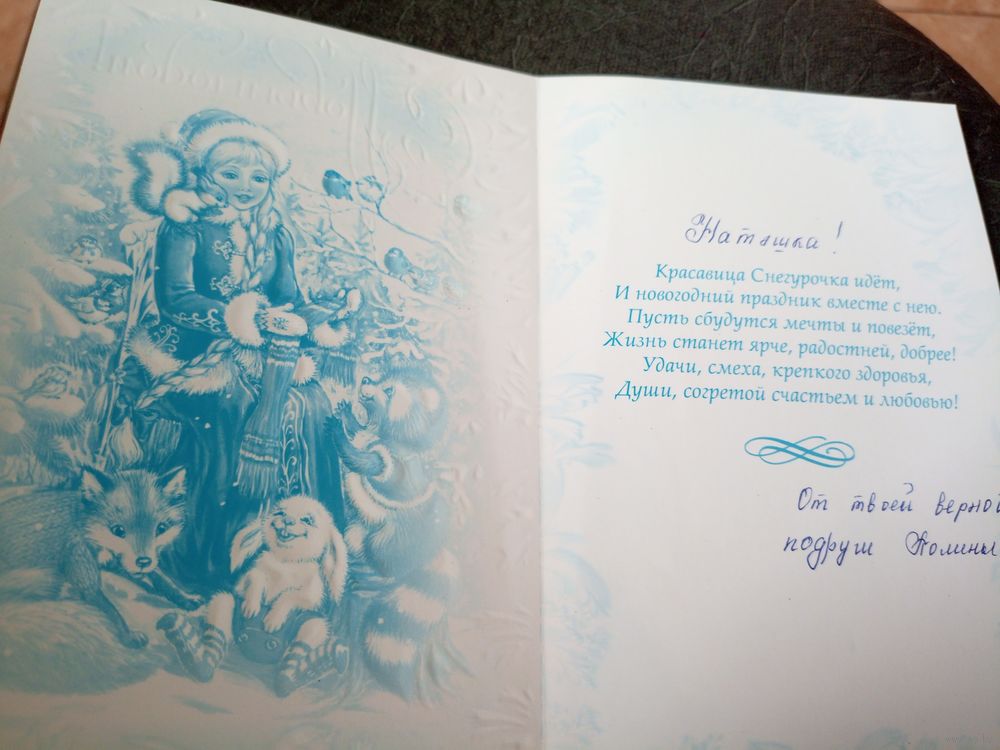 Наташка!
Красавица Снегурочка идёт,
И новогодний праздник вместе с нею.
Пусть сбудутся мечты и повезёт,
Жизнь станет ярче, радостней, добрее!
Удачи, смеха, крепкого здоровья,
Души, согретой счастьем и любовью!
От твоей верной
подруги Полины